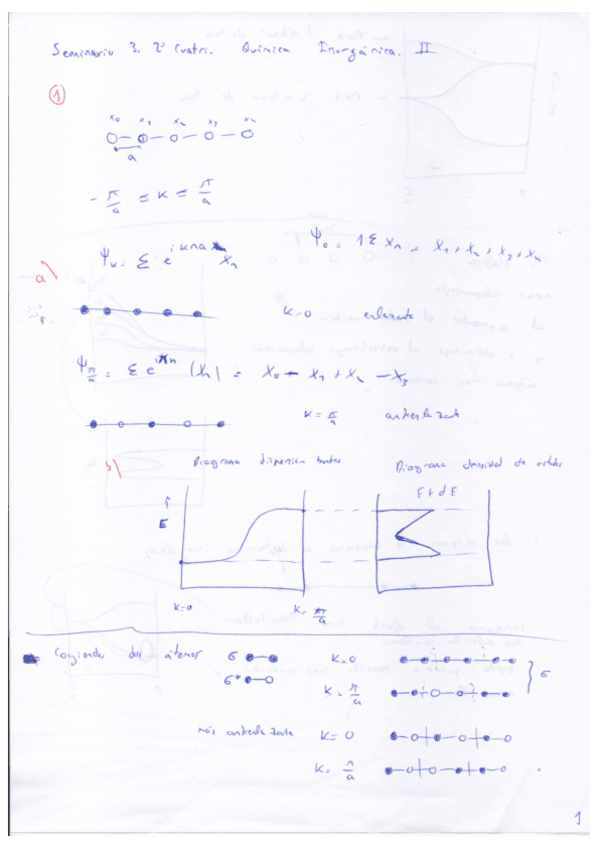 Seminario 3. 2º Cuatri. Química Inorgánica. II
1
x₀ x₁ x₂ x₃ x₄
a
- π/a ≤ K ≤ π/a
a)
Ψₖ = Σ e^{ikna} Xₙ Ψ₀ = 1 Σ Xₙ = X₁ + X₂ + X₃ + Xₙ
K=0 enlazante
Ψ_{π/a} = Σ e^{iπn} (Xₙ) = X₀ - X₁ + X₂ - X₃
K = π/a antienlazante
b) Diagrama dispersion bandas Diagrama densidad de estados
E E + dE
K=0 K= π/a
Cogiendo dos átomos σ K=0
σ* K= π/a σ
más antienlazante K=0
K= π/a
1